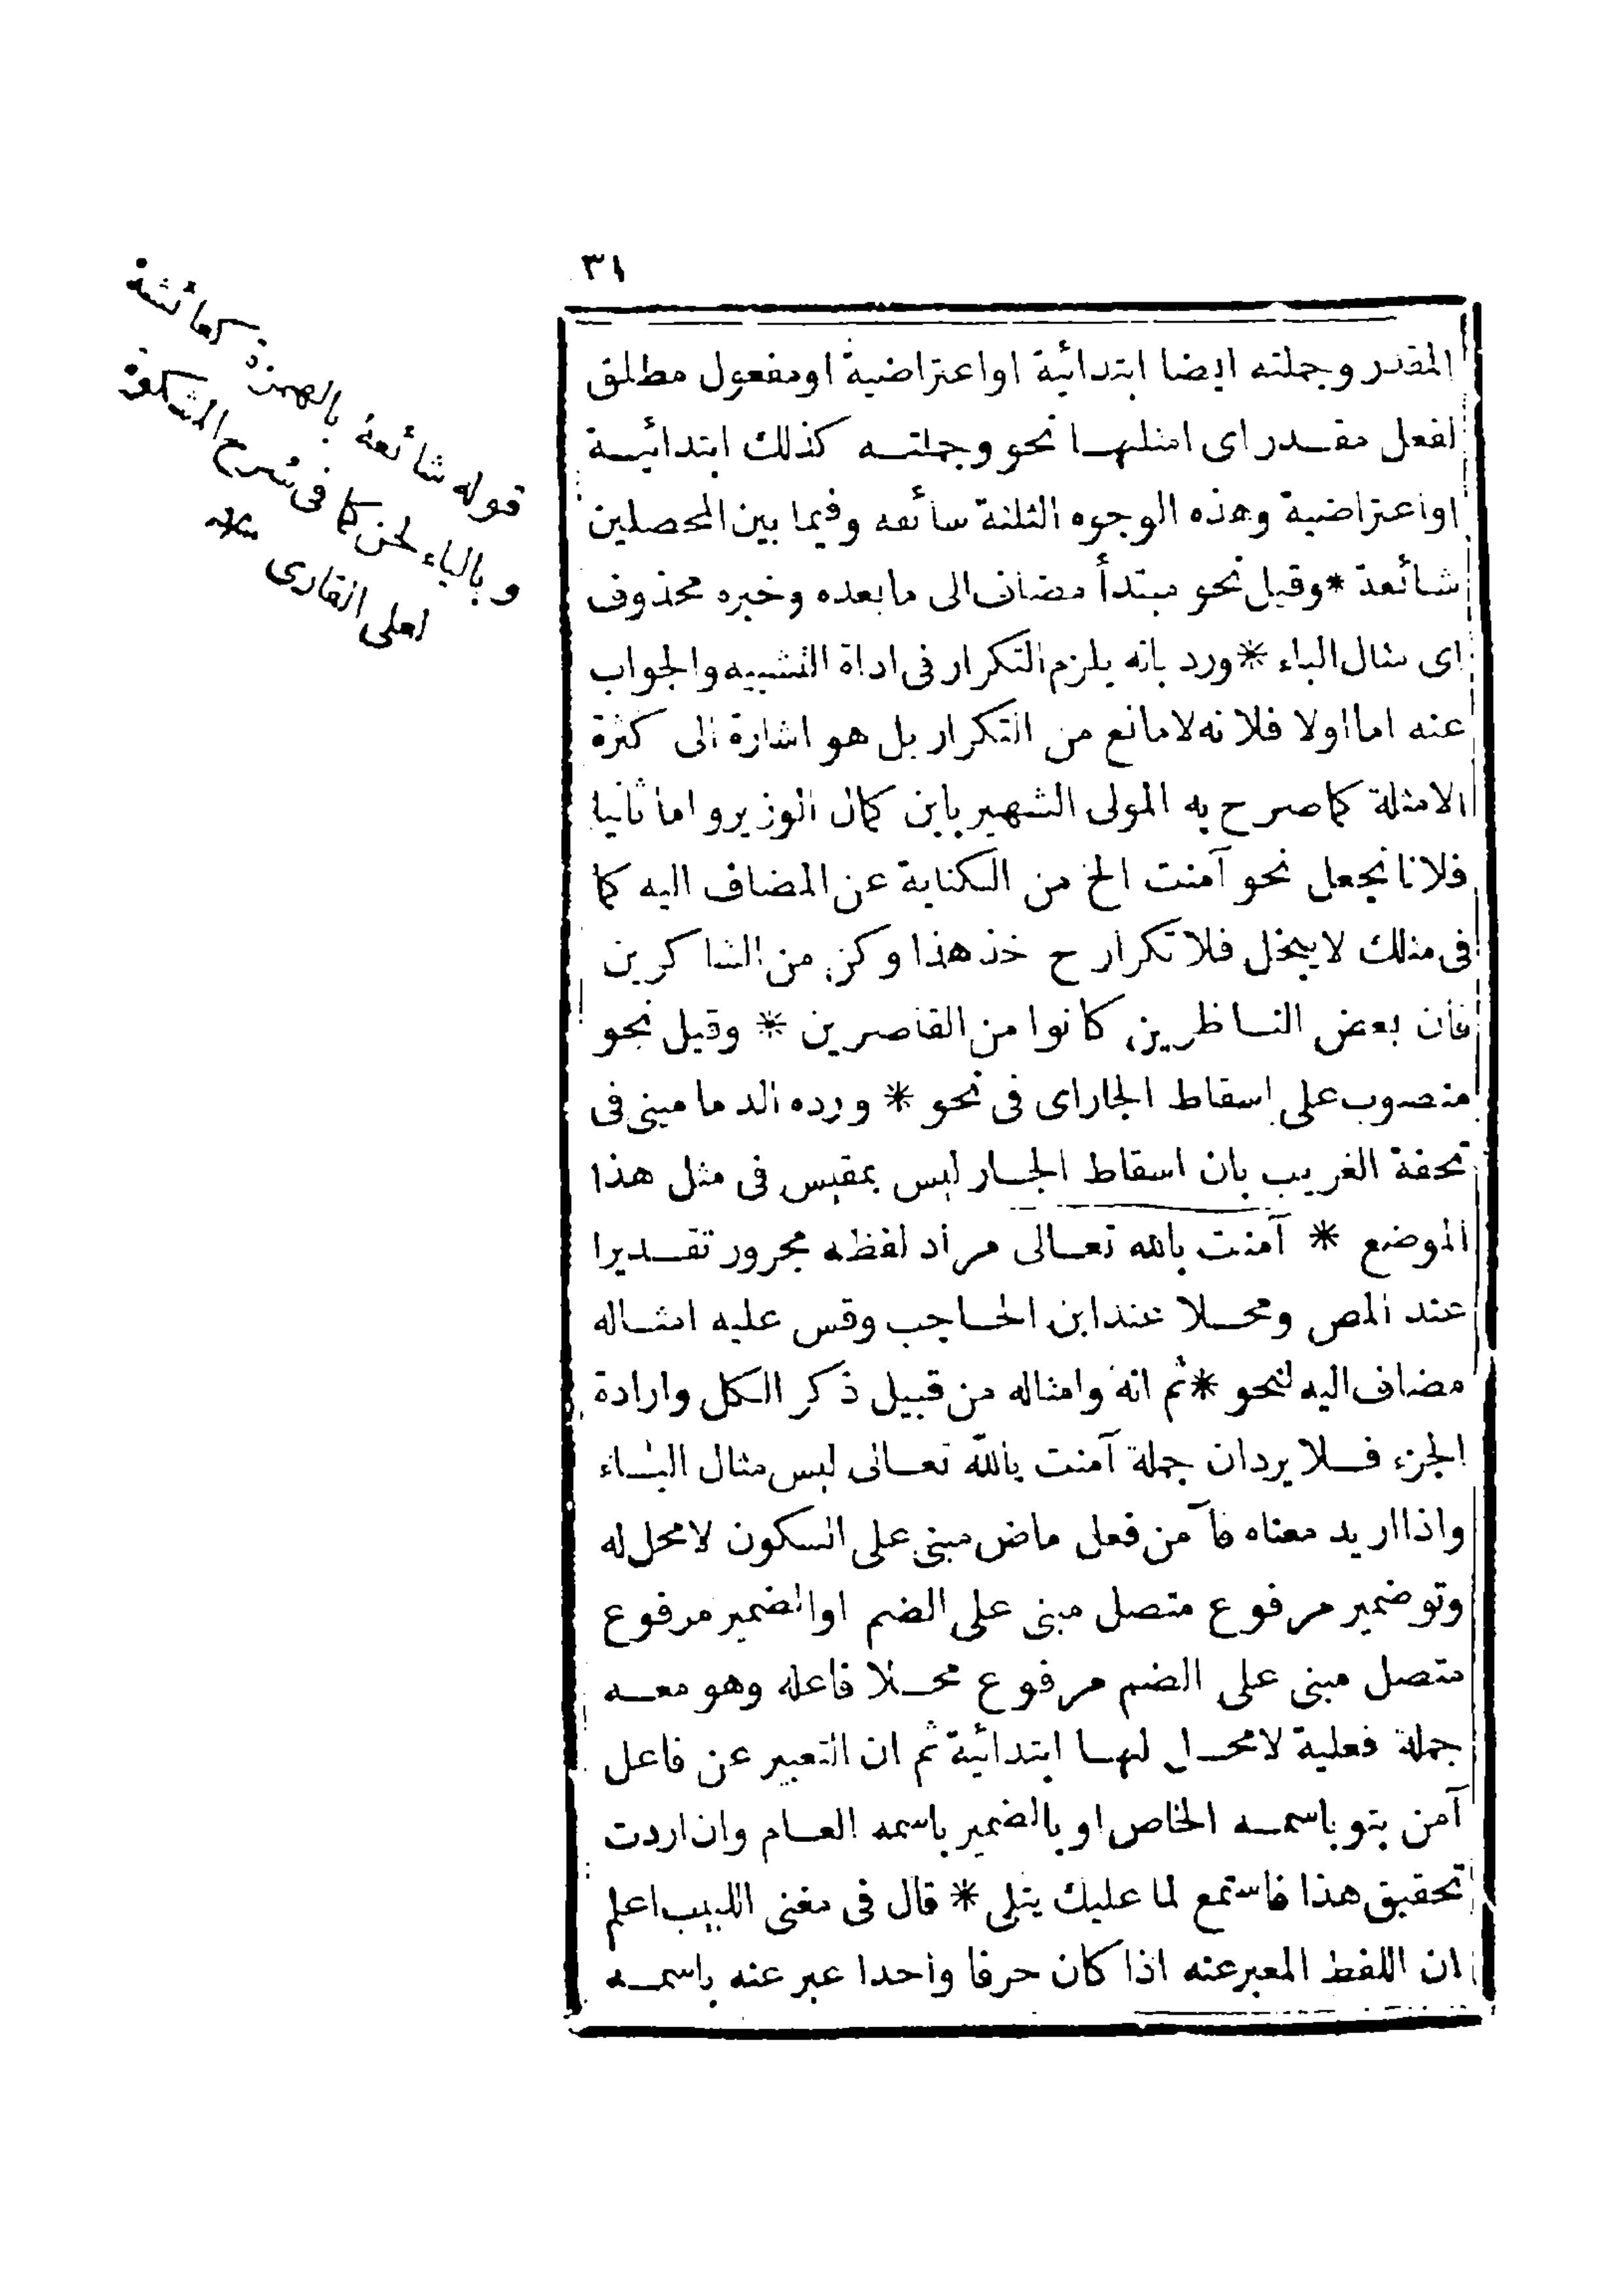 ٣١
المقدر وجملته ايضا ابتدائية او اعتراضية او مفعول مطلق
لفعل مقدر اى امثلها نحو وجملته كذلك ابتدائية
او اعتراضية وهذه الوجوه الثلثة سائغه وفيما بين المحصلين
شائعة * وقيل نحو مبتدأ مضاف الى ما بعده وخبره محذوف
اى مثال الباء * ورد بانه يلزم التكرار فى اداة التشبيه والجواب
عنه اما اولا فلانه لا مانع من التكرار بل هو اشارة الى كثرة
الامثلة كما صرح به المولى الشهير بابن كمال الوزير واما ثانيا
فلانا نجعل نحو آمنت الخ من الكناية عن المضاف اليه كما
فى مثلك لا يبخل فلا تكرار ح خذ هذا وكن من الشاكرين
فان بعض الناظرين كانوا من القاصرين * وقيل نحو
منصوب على اسقاط الجار اى فى نحو * ورده الدمامينى فى
تحفة الغريب بان اسقاط الجار ليس بمقيس فى مثل هذا
الموضع * آمنت بالله تعالى مراد لفظه مجرور تقديرا
عند المص ومحلا عند ابن الحاجب وقس عليه امثاله
مضاف اليه لنحو * ثم انه وامثاله من قبيل ذكر الكل وارادة
الجزء فلا يرد ان جملة آمنت بالله تعالى ليس مثال الباء
واذا اريد معناه فآمن فعل ماض مبنى على السكون لا محل له
وتو ضمير مرفوع متصل مبنى على الضم او الضمير مرفوع
متصل مبنى على الضم مرفوع محلا فاعله وهو معه
جملة فعلية لا محل لها ابتدائية ثم ان التعبير عن فاعل
آمن بتو باسمه الخاص او بالضمير باسمه العام وان اردت
تحقيق هذا فاستمع لما عليك يتلى * قال فى مغنى اللبيب اعلم
ان اللفظ المعبر عنه اذا كان حرفا واحدا عبر عنه باسمه
قوله شائعة بالهمزة كعائشة
وبالياء لحن كما فى شرح المشكوة
لعلى القارى